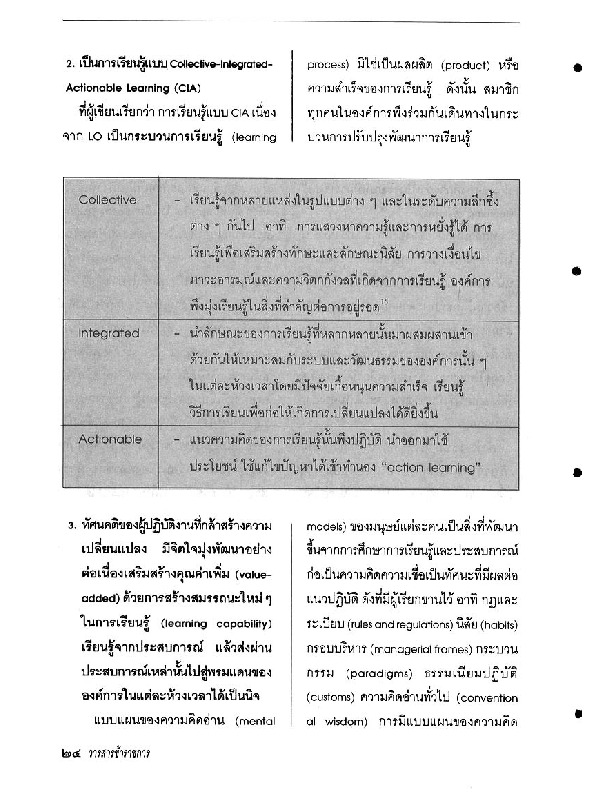 2. เป็นการเรียนรู้แบบ Collective-Integrated-
Actionable Learning (CIA)
ที่ผู้เขียนเรียกว่า การเรียนรู้แบบ CIA เนื่อง
จาก LO เป็นกระบวนการเรียนรู้ (learning
process) มิใช่เป็นผลผลิต (product) หรือ
ความสำเร็จของการเรียนรู้ ดังนั้น สมาชิก
ทุกคนในองค์การพึงร่วมกันเดินทางในกระ
บวนการปรับปรุงพัฒนาการเรียนรู้
Collective
– เรียนรู้จากหลายแหล่งในรูปแบบต่าง ๆ และในระดับความลึกซึ้ง
ต่าง ๆ กันไป อาทิ การแสวงหาความรู้และการหยั่งรู้ได้ การ
เรียนรู้เพื่อเสริมสร้างทักษะและลักษณะนิสัย การวางเงื่อนไข
ภาวะอารมณ์และความวิตกกังวลที่เกิดจากการเรียนรู้ องค์การ
พึงมุ่งเรียนรู้ในสิ่งที่สำคัญต่อการอยู่รอด
Integrated
– นำลักษณะของการเรียนรู้ที่หลากหลายนั้นมาผสมผสานเข้า
ด้วยกันให้เหมาะสมกับระบบและวัฒนธรรมขององค์การนั้น ๆ
ในแต่ละห้วงเวลาโดยมีปัจจัยเกื้อหนุนความสำเร็จ เรียนรู้
วิธีการเรียนเพื่อก่อให้เกิดการเปลี่ยนแปลงได้ดียิ่งขึ้น
Actionable
– แนวความคิดของการเรียนรู้นั้นพึงปฏิบัติ นำออกมาใช้
ประโยชน์ ใช้แก้ไขปัญหาได้เข้าทำนอง "action learning"
3. ทัศนคติของผู้ปฏิบัติงานที่กล้าสร้างความ
เปลี่ยนแปลง มีจิตใจมุ่งพัฒนาอย่าง
ต่อเนื่องเสริมสร้างคุณค่าเพิ่ม (value-
added) ด้วยการสร้างสมรรถนะใหม่ ๆ
ในการเรียนรู้ (learning capability)
เรียนรู้จากประสบการณ์ แล้วส่งผ่าน
ประสบการณ์เหล่านั้นไปสู่พรมแดนของ
องค์การในแต่ละห้วงเวลาได้เป็นนิจ
แบบแผนของความคิดอ่าน (mental
models) ของมนุษย์แต่ละคนเป็นสิ่งที่พัฒนา
ขึ้นจากการศึกษาการเรียนรู้และประสบการณ์
ก่อเป็นความคิดความเชื่อเป็นทัศนะที่มีผลต่อ
แนวปฏิบัติ ดังที่มีผู้เรียกขานไว้ อาทิ กฎและ
ระเบียบ (rules and regulations) นิสัย (habits)
กรอบบริหาร (managerial frames) กระบวน
กรรม (paradigms) ธรรมเนียมปฏิบัติ
(customs) ความคิดอ่านทั่วไป (convention
al wisdom) การมีแบบแผนของความคิด
๒๔ วารสารข้าราชการ